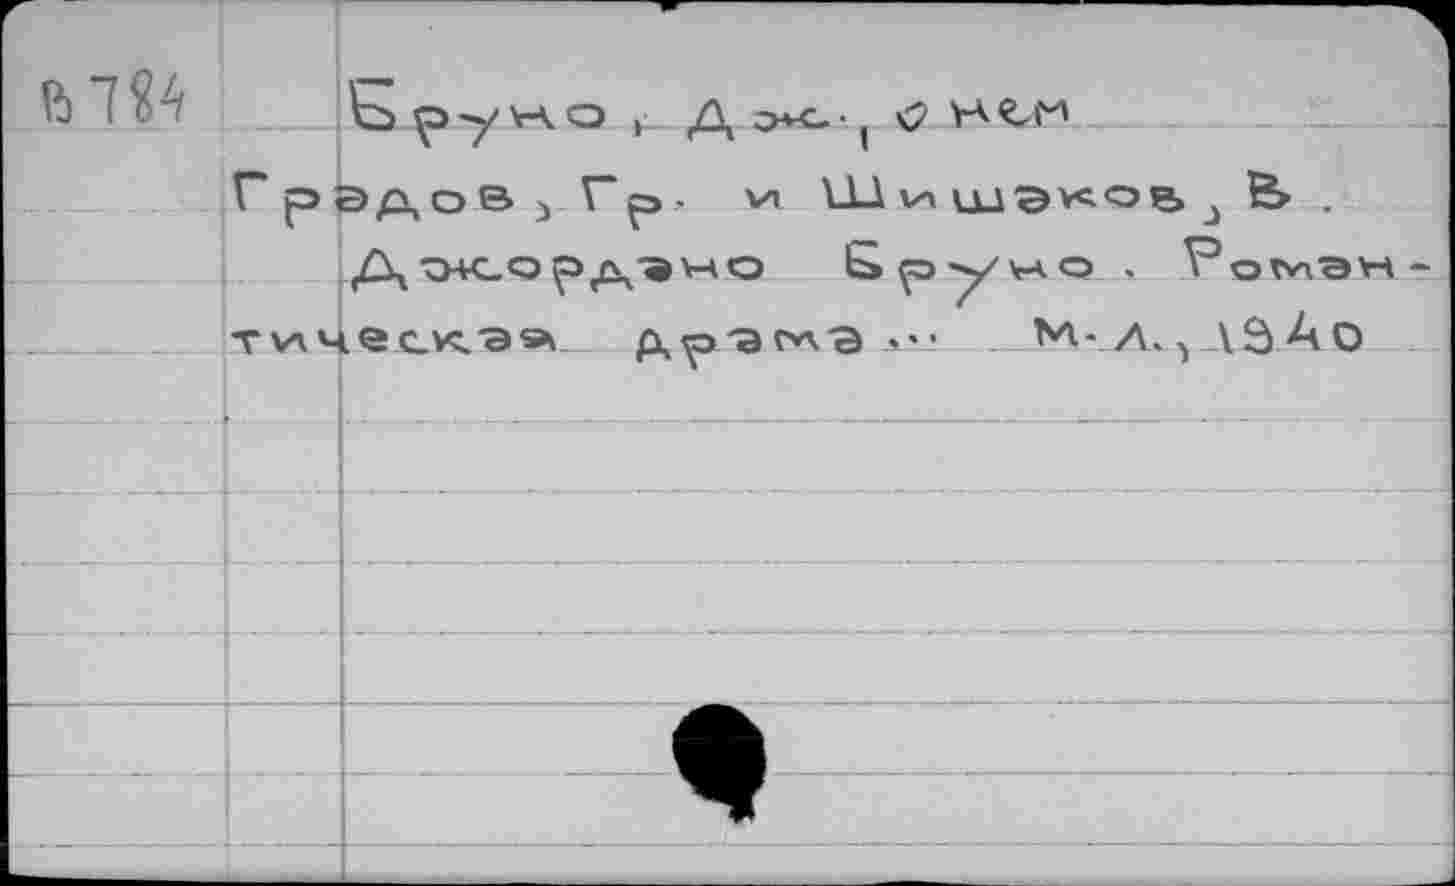 В784 Бруно, Дж., о нем
Градов, Гр. и Шишаков, В.
Джордано Бруно. Роман-
тическая драма... М.-Л., 1940